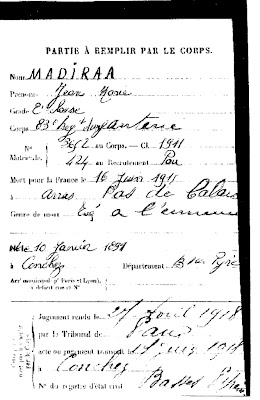 PARTIE À REMPLIR PAR LE CORPS.
Nom MADIRAA
Prénoms Jean Marie
Grade 2e
Corps 83e Regt d'Infanterie
N° au Corps. — Cl. 1911
Matricule. 424 au Recrutement Pau
Mort pour la France le 16 Juin 1915
à Arras Pas de Calais
Genre de mort Tué à l'ennemi
Né le 10 Janvier 1891
à Conchez Département Bses Pyr
Arrt municipal (pr Paris et Lyon),
à défaut rue et N°
Jugement rendu le 27 Avril 1918
par le Tribunal de Pau
acte ou jugement transcrit le 1918
à Conchez
N° du registre d'état civil Basses